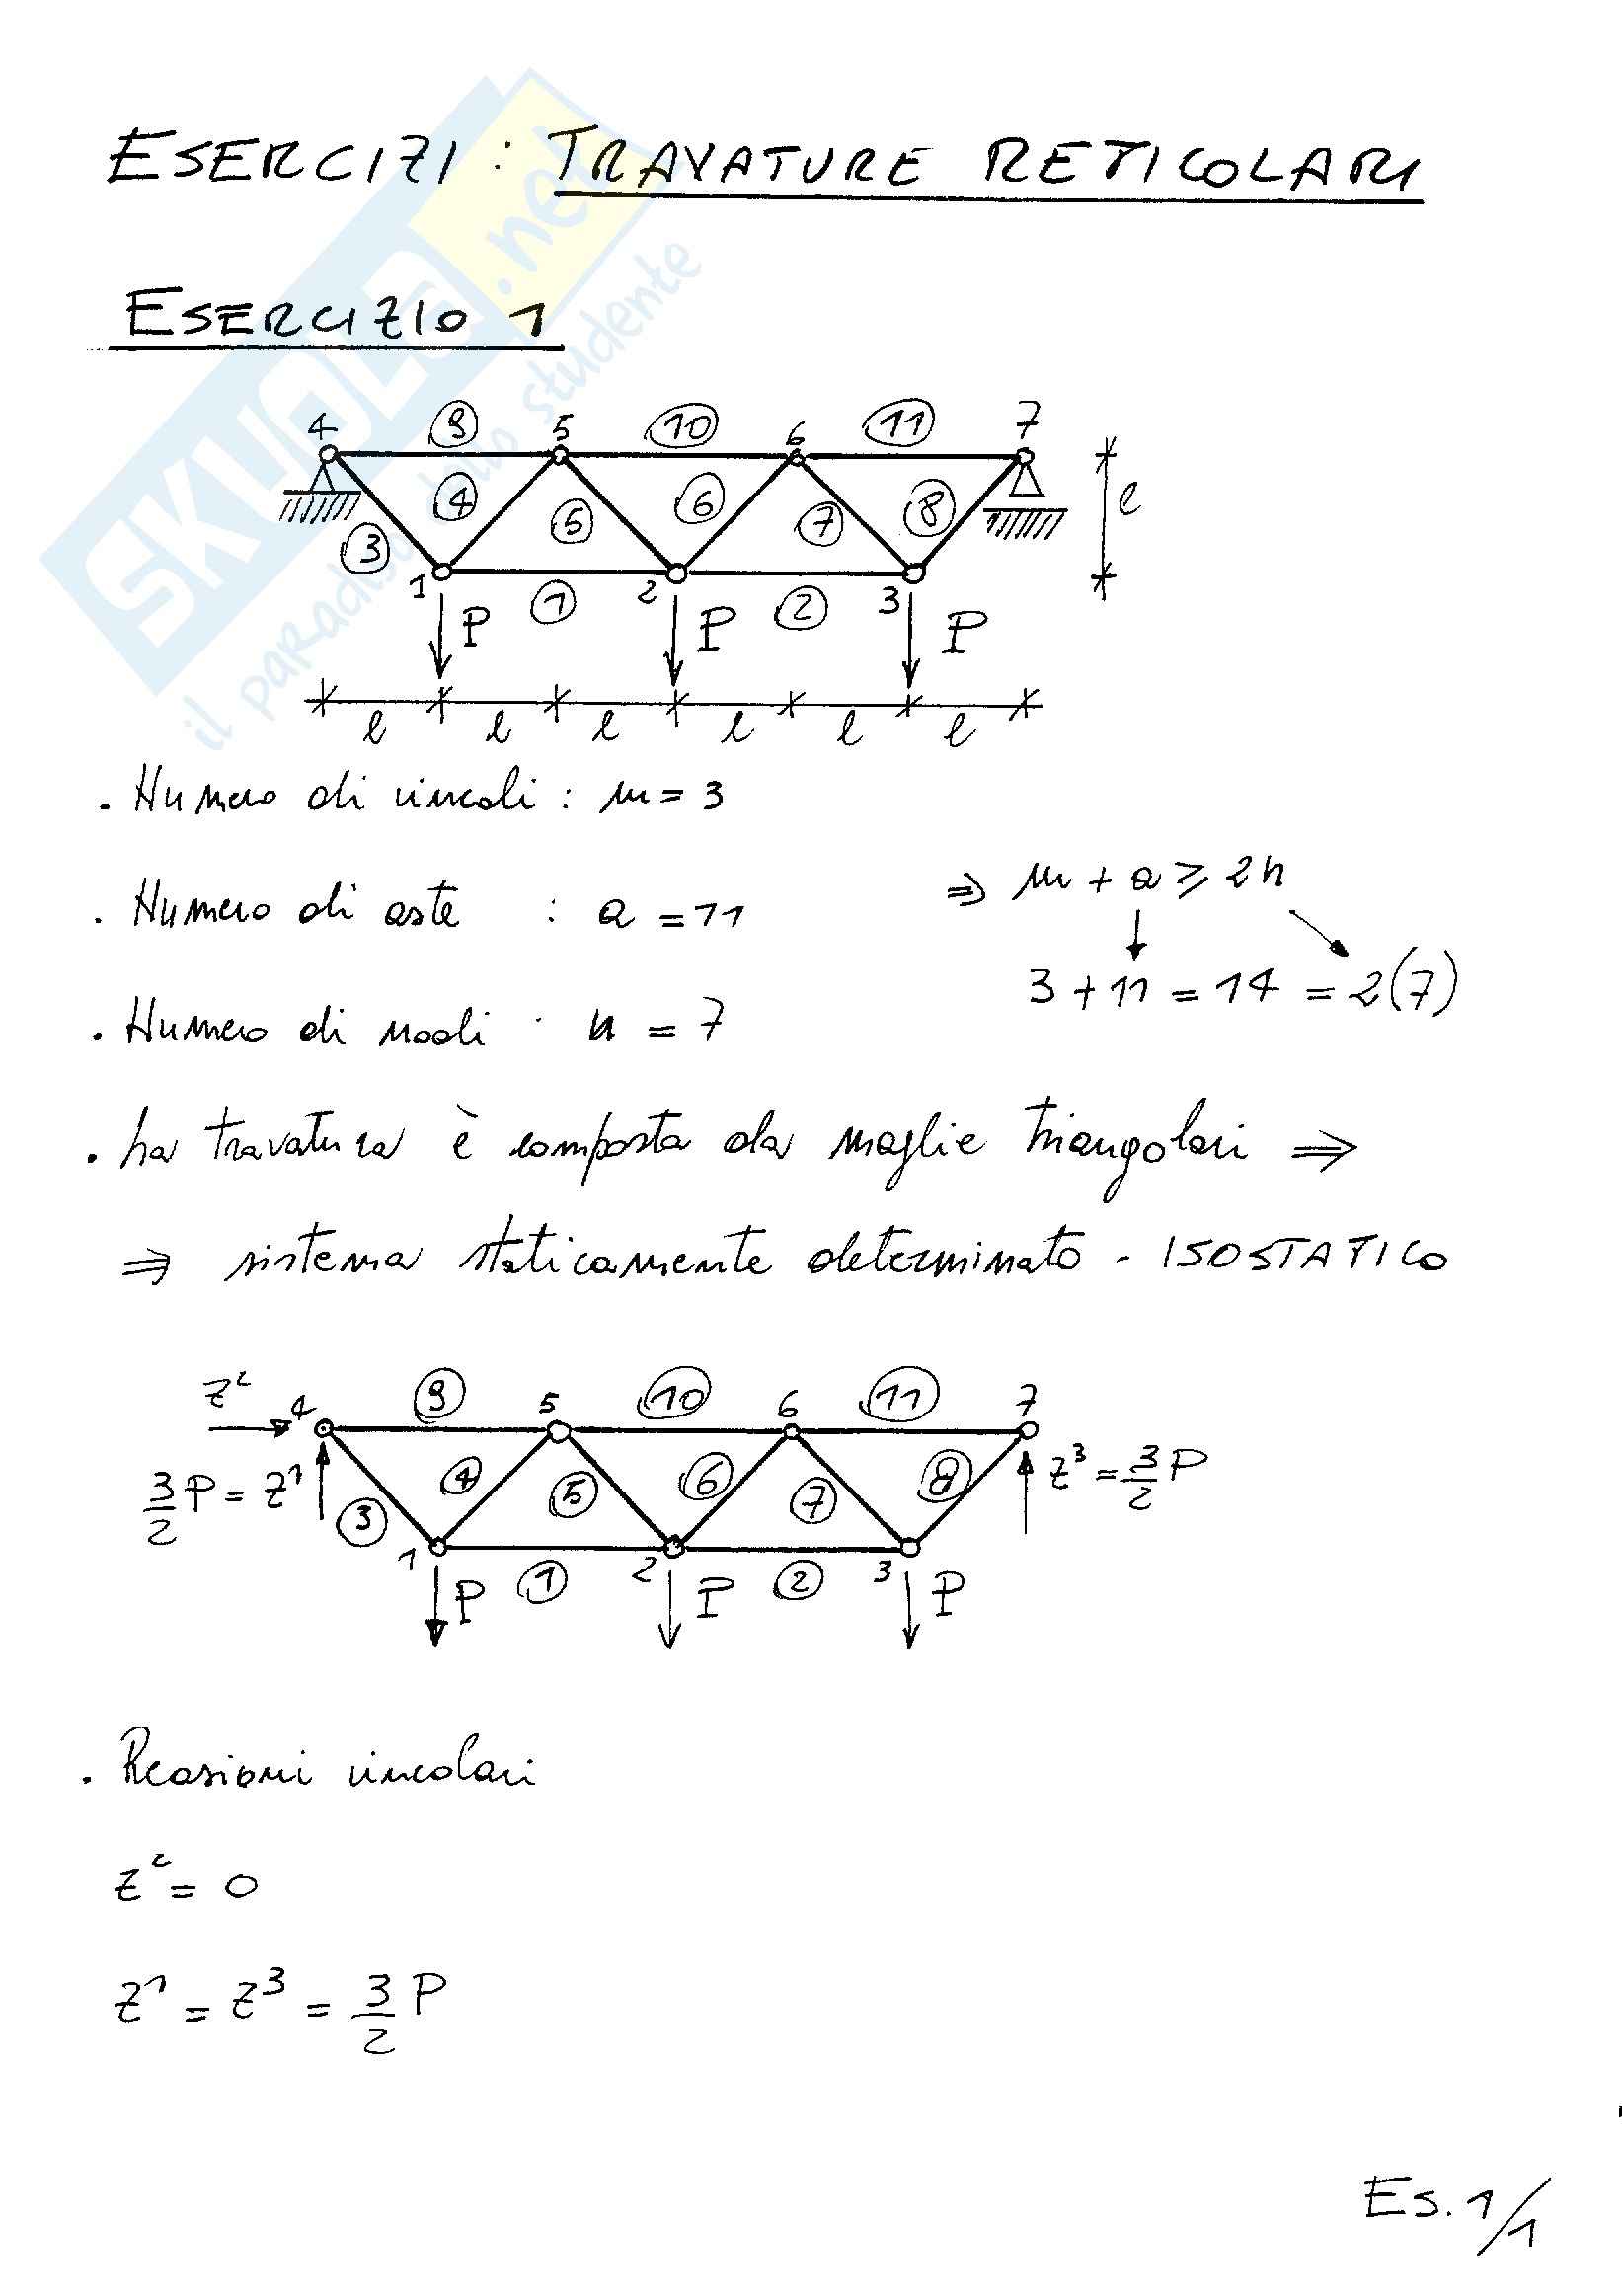 ESERCIZI : TRAVATURE RETICOLARI
SKUOLA.net
il paradiso dello studente
ESERCIZIO 1
4 9 5 10 6 11 7
4 5 6 7 8 l
3
1 1 2 2 3
P P P
l l l l l l
. Numero di vincoli : m = 3
. Numero di aste : a = 11 ⇒ m + a ≥ 2n
3 + 11 = 14 = 2(7)
. Numero di nodi : n = 7
. La travatura è composta da maglie triangolari ⇒
⇒ sistema staticamente determinato - ISOSTATICO
z² 4 9 5 10 6 11 7
3/2 P = z¹ 3 4 5 6 7 8 z³ = 3/2 P
1 1 2 2 3
P P P
. Reazioni vincolari
z² = 0
z¹ = z³ = 3/2 P
Es. 1/1